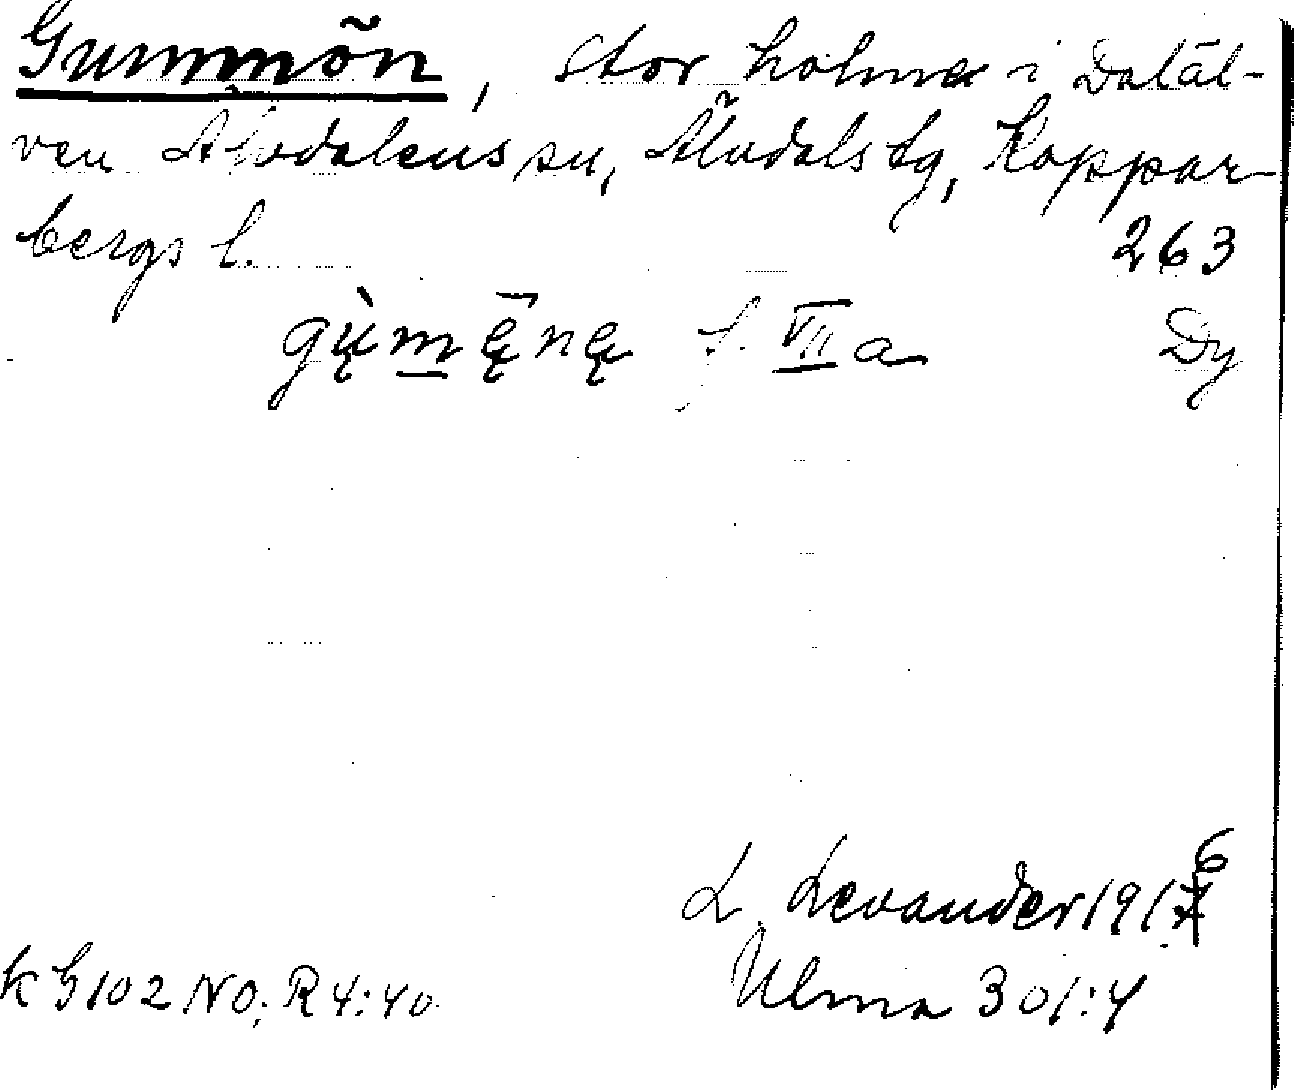 Gummön, stor holme i Daläl-
ven Älvdalens sn, Älvdals tg, Koppar-
bergs l. 263
gù̜mę̄nę f. VII a Dy
L. Levander 1916
Ulma 301:4
K G 102 NO; R 4:40